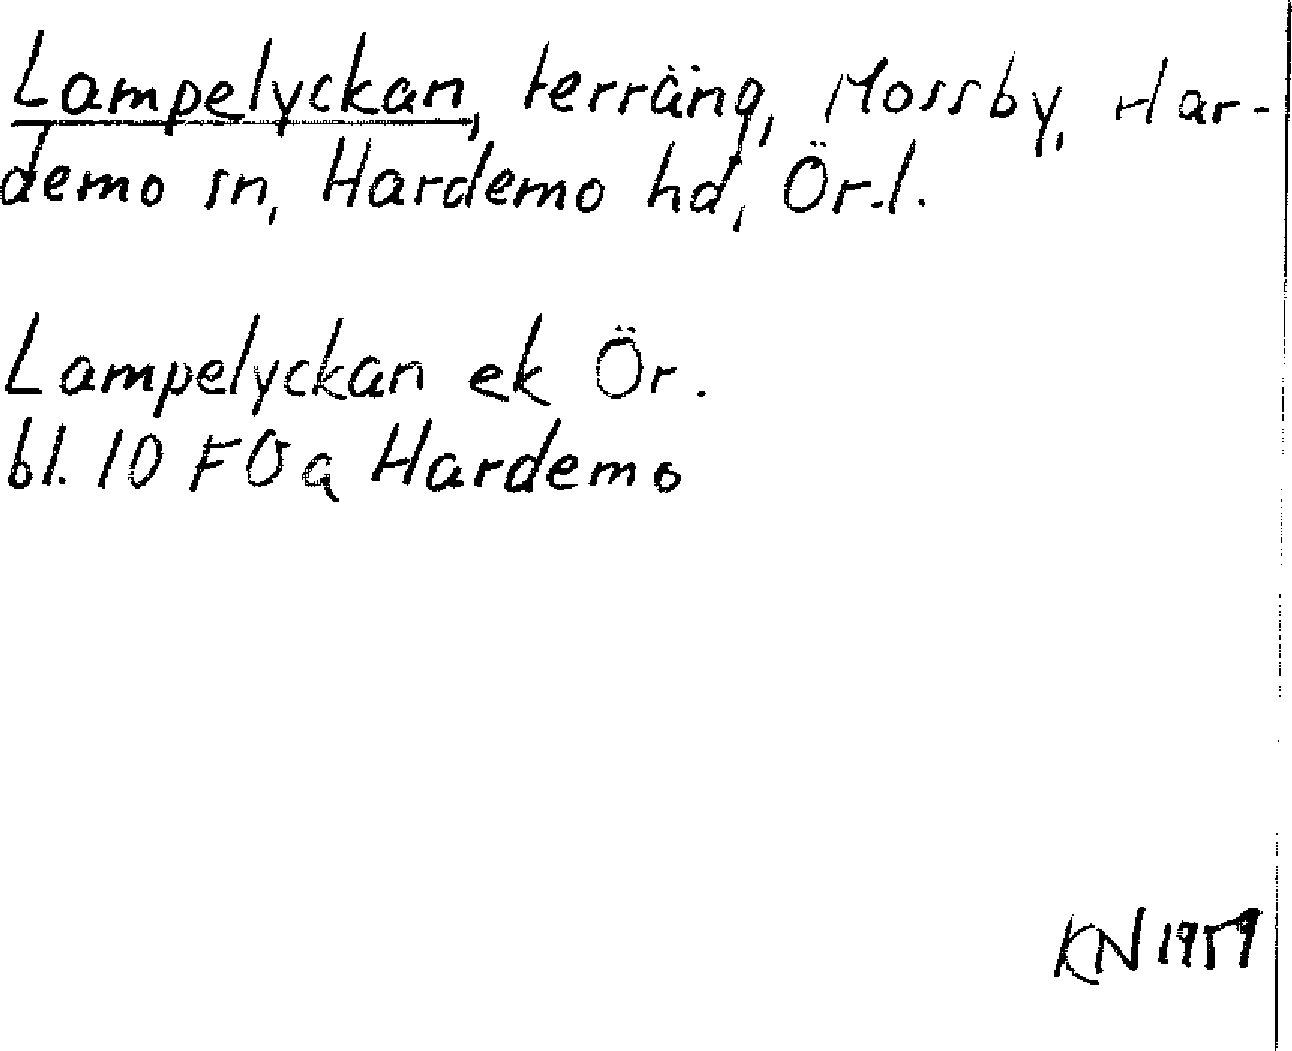 Lampelyckan, terräng, Mossby, Har-
demo sn, Hardemo hd, Ör.l.
Lampelyckan ek Ör.
bl. 10 FÖa Hardemo
KN 1959